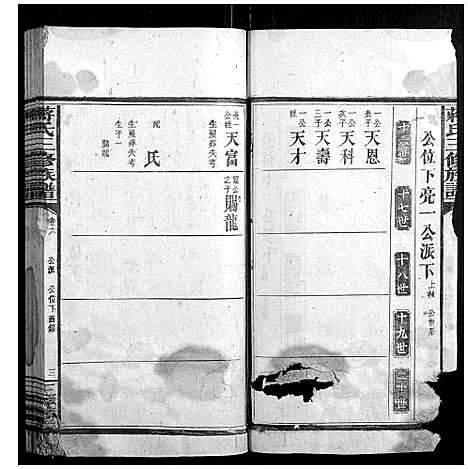 蔣氏三修族譜
公位下亮一公派下
十六世
十七世
十八世
十九世
二十世
一公長子
天恩
一公次子
天科
一公三子
天壽
一公
天才
天富
生歿葬失考
富公之子
賜龍
氏
生歿葬失考
生子一
賜龍
蔣氏三修族譜
卷六
公派
公位下齒錄
三